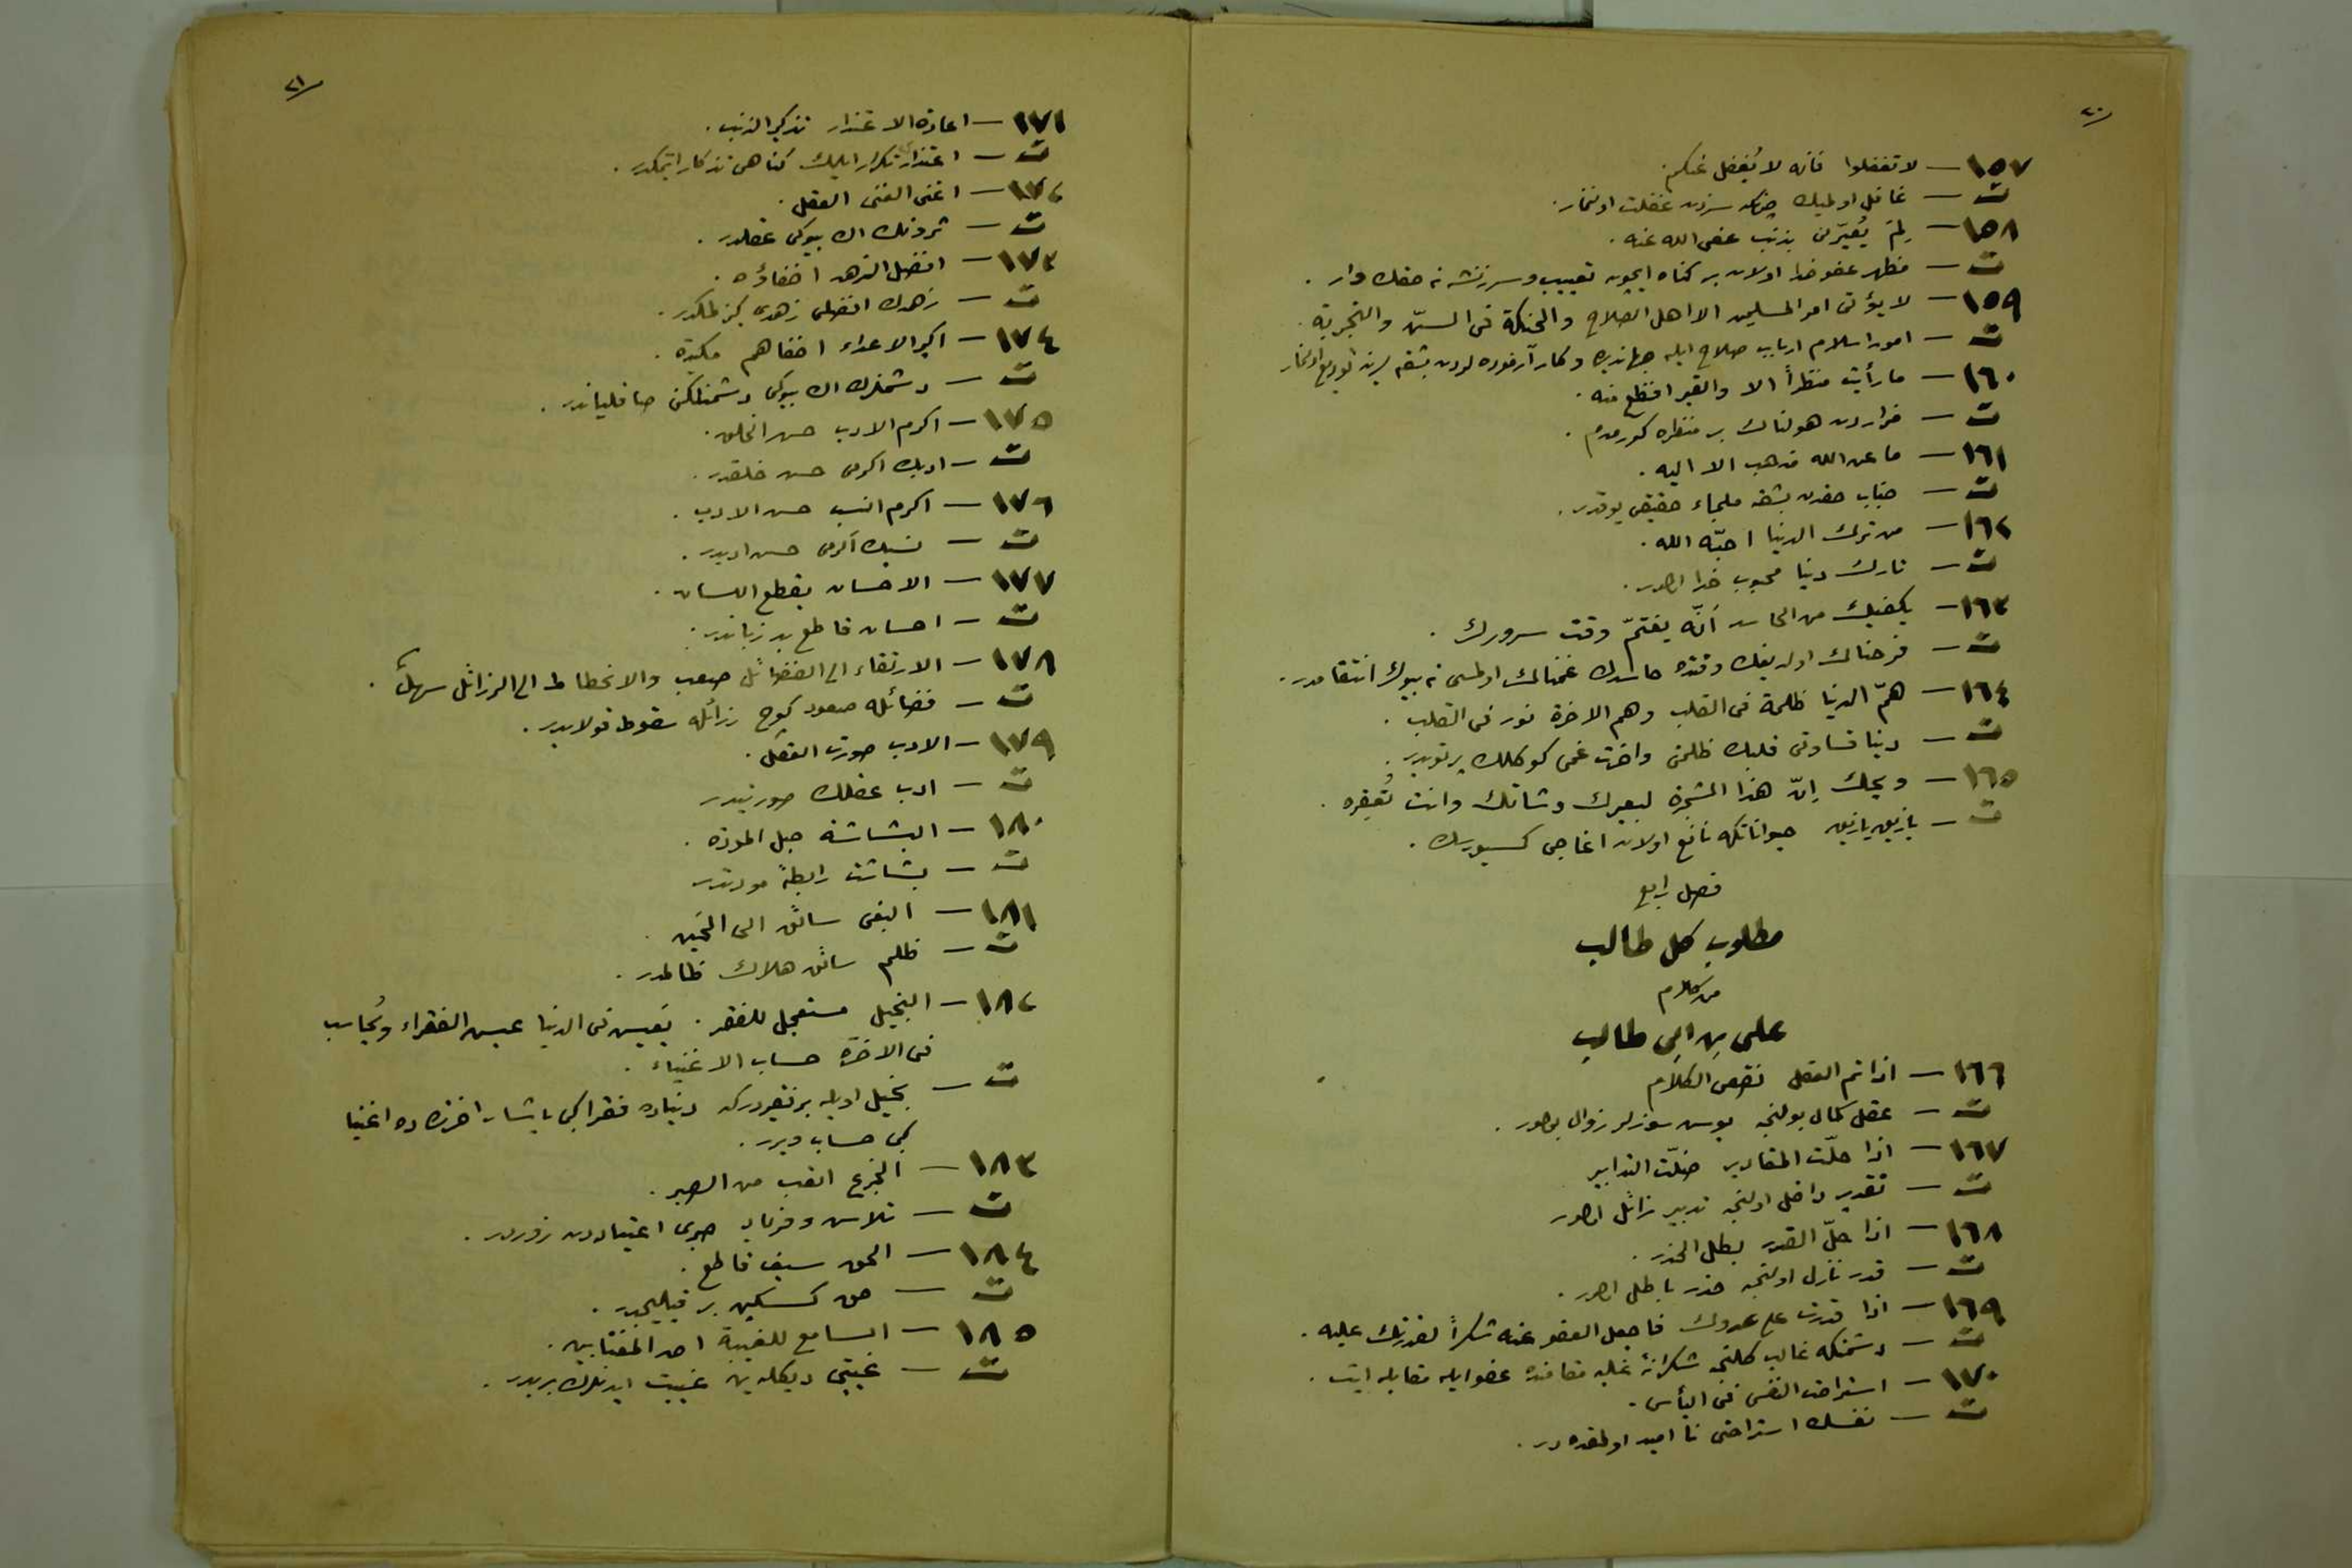 ٢٠
١٥٧ — لا تغفلوا فانه لا يُغفل عنكم.
ت — غافل اولمیك چونكه سزدن غفلت اولنماز.
١٥٨ — لِمَ يُعَيَّرُ بذنب عفى الله عنه.
ت — مظهر عفو خدا اولان بر كناه ایچون تعییب و سرزنشه نه حقك وار.
١٥٩ — لا يؤتى امر المسلمين الا اهل الصلاح والحنكة فى السنّ والتجربة.
ت — امور اسلام ارباب صلاح ایله جهاندیده و كار آزموده لردن بشقه سنه تودیع اولنماز
١٦٠ — ما رأيت منظراً الا والقبر افظع منه.
ت — مزاردن هولناك بر منظره كورمدم.
١٦١ — ما عن الله مذهب الا اليه.
ت — جناب حقدن بشقه ملجاء حقیقی یوقدر.
١٦٢ — من ترك الدنيا احبّه الله.
ت — تارك دنیا محبوب خدا اولور.
١٦٣ — يكفيك من الحاسد أنّه يغتمّ وقت سرورك.
ت — فرحناك اولدیغك وقتده حاسدك غمناك اولمسی نه بیوك انتقامدر.
١٦٤ — همّ الدنيا ظلمة فى القلب وهم الاخرة نور فى القلب.
ت — دنیا قساوتی قلبك ظلمتی واخرت غمی كوكلك پرتویدر.
١٦٥ — ويحك إنّ هذا الشجرة لبعيرك وشاتك وانت تُعقره.
ت — یازیق یازیق حیواناتكه نافع اولان اغاجی كسیورسك.
فصل رابع
مطلوب كل طالب
من كلام
على بن ابى طالب
١٦٦ — اذا تم العقل نقص الكلام
ت — عقل كمال بولنجه بوس سوزلر زوال بولور.
١٦٧ — اذا حلّت المقادير ضلّت التدابير
ت — تقدیر داخل اولنجه تدبیر زائل اولور
١٦٨ — اذا حلّ القدر بطل الحذر.
ت — قدر نازل اولنجه حذر باطل اولور.
١٦٩ — اذا قدرت على عدوك فاجعل العفو عنه شكراً لقدرتك عليه.
ت — دشمنكه غالب كلنجه شكرانهٔ غلبه مقامنده عفو ایله مقابله ایت.
١٧٠ — استراحة النفس فى اليأس.
ت — نفسك استراحتی نا امید اولمقده در.
٢١
١٧١ — اعادة الاعتذار تذكير الذنب.
ت — اعتذارى تكرار ایلمك كناهى تذكار ایتمكدر.
١٧٢ — اغنى الغنى العقل.
ت — ثروتك اك بیوكی عقلدر.
١٧٣ — افضل الزهد اخفاؤه.
ت — زهدك افضلی زهدی كیزلمكدر.
١٧٤ — اكبر الاعداء اخفاهم مكيدة.
ت — دشمنلرك اك بیوكی دشمنلكنی صاقلیاندر.
١٧٥ — اكرم الادب حسن الخلق.
ت — ادبك اكرمی حسن خلقدر.
١٧٦ — اكرم النسب حسن الادب.
ت — نسبك اكرمی حسن ادبدر.
١٧٧ — الاحسان يقطع اللسان.
ت — احسان قاطع بد زباندر.
١٧٨ — الارتقاء الى الفضائل صعب والانحطاط الى الرزائل سهلٌ.
ت — فضائله صعود كوج رزائله سقوط قولایدر.
١٧٩ — الادب صورت العقل.
ت — ادب عقلك صورتیدر
١٨٠ — البشاشة حبل المودة.
ت — بشاشت رابطهٔ مودتدر
١٨١ — البغى سائق الى الحَين.
ت — ظلم سائق هلاك ظالمدر.
١٨٢ — البخيل مستعجل للفقر. يَعيش فى الدنيا عيش الفقراء ويُحاسب
فى الاخرة حساب الاغنياء.
ت — بخیل اویله بر فقیردركه دنیاده فقرا كبی یاشار اخرتده ده اغنیا
كبی حساب ویرر.
١٨٣ — الجزع اتعب من الصبر.
ت — تلاش و فریاد صبری اعتیاددن زوردر.
١٨٤ — الحق سيف قاطع.
ت — حق كسكین بر قیلیجدر.
١٨٥ — السامع للغيبة احد المغتابين.
ت — غیبتی دیكله ین غیبت ایدنلرك بریدر.